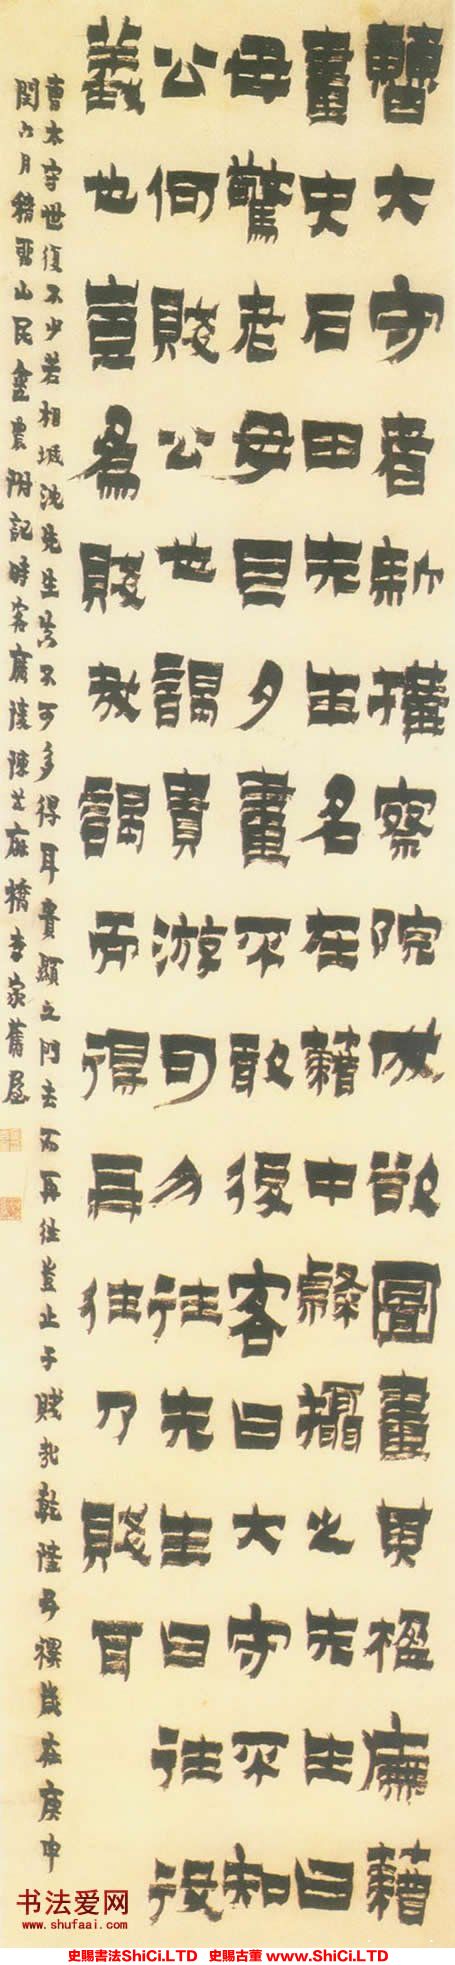 曹大守者新搆察院成欲圖畫其楹廡藉
畫史石田先生名在藉中隸攝之先生曰
毋驚老母旦夕畫不敢後客曰大守不知
公何賤公也謁貴游可勿往先生曰往役
義也豈為賤哉謁而得再往乃賤耳
曹太守世復不少若相城沈先生實不可多得耳貴顯之門去而再往豈止于賤哉乾隆五禩歲在庚申
閏六月稽畱山民金農附記時客廣陵陳公麻橋李家舊屋
书法爱网
www.shufaai.com
史賜書法ShiCi.LTD 史賜古董 www.ShiCi.LTD